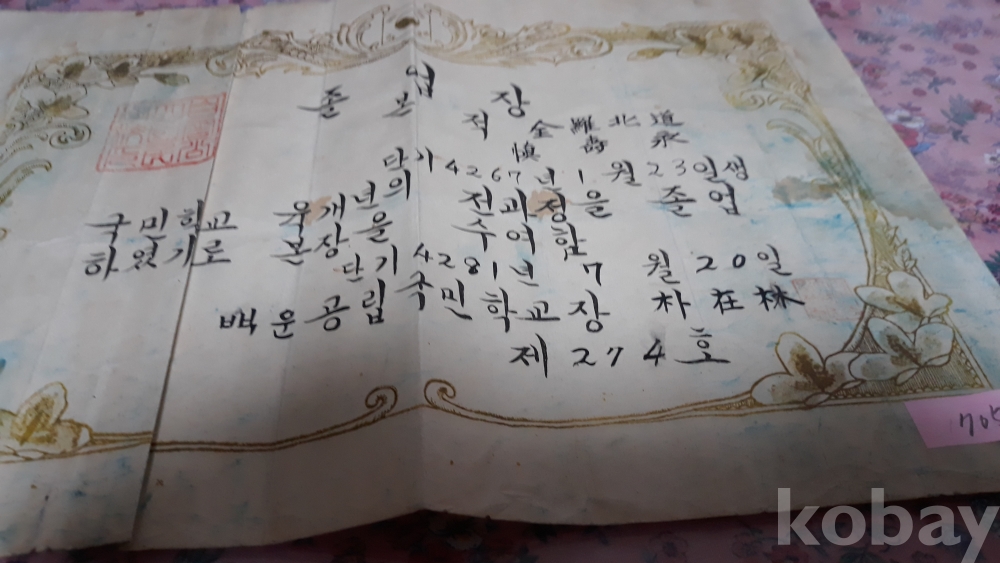 졸업장
본적 全羅北道
愼壽永
단기 4267년 1월 23일생
국민학교 육개년의 전과정을 졸업
하였기로 본장을 수여함
단기 4281년 7월 20일
백운공립국민학교장 朴在林
제 274호
kobay